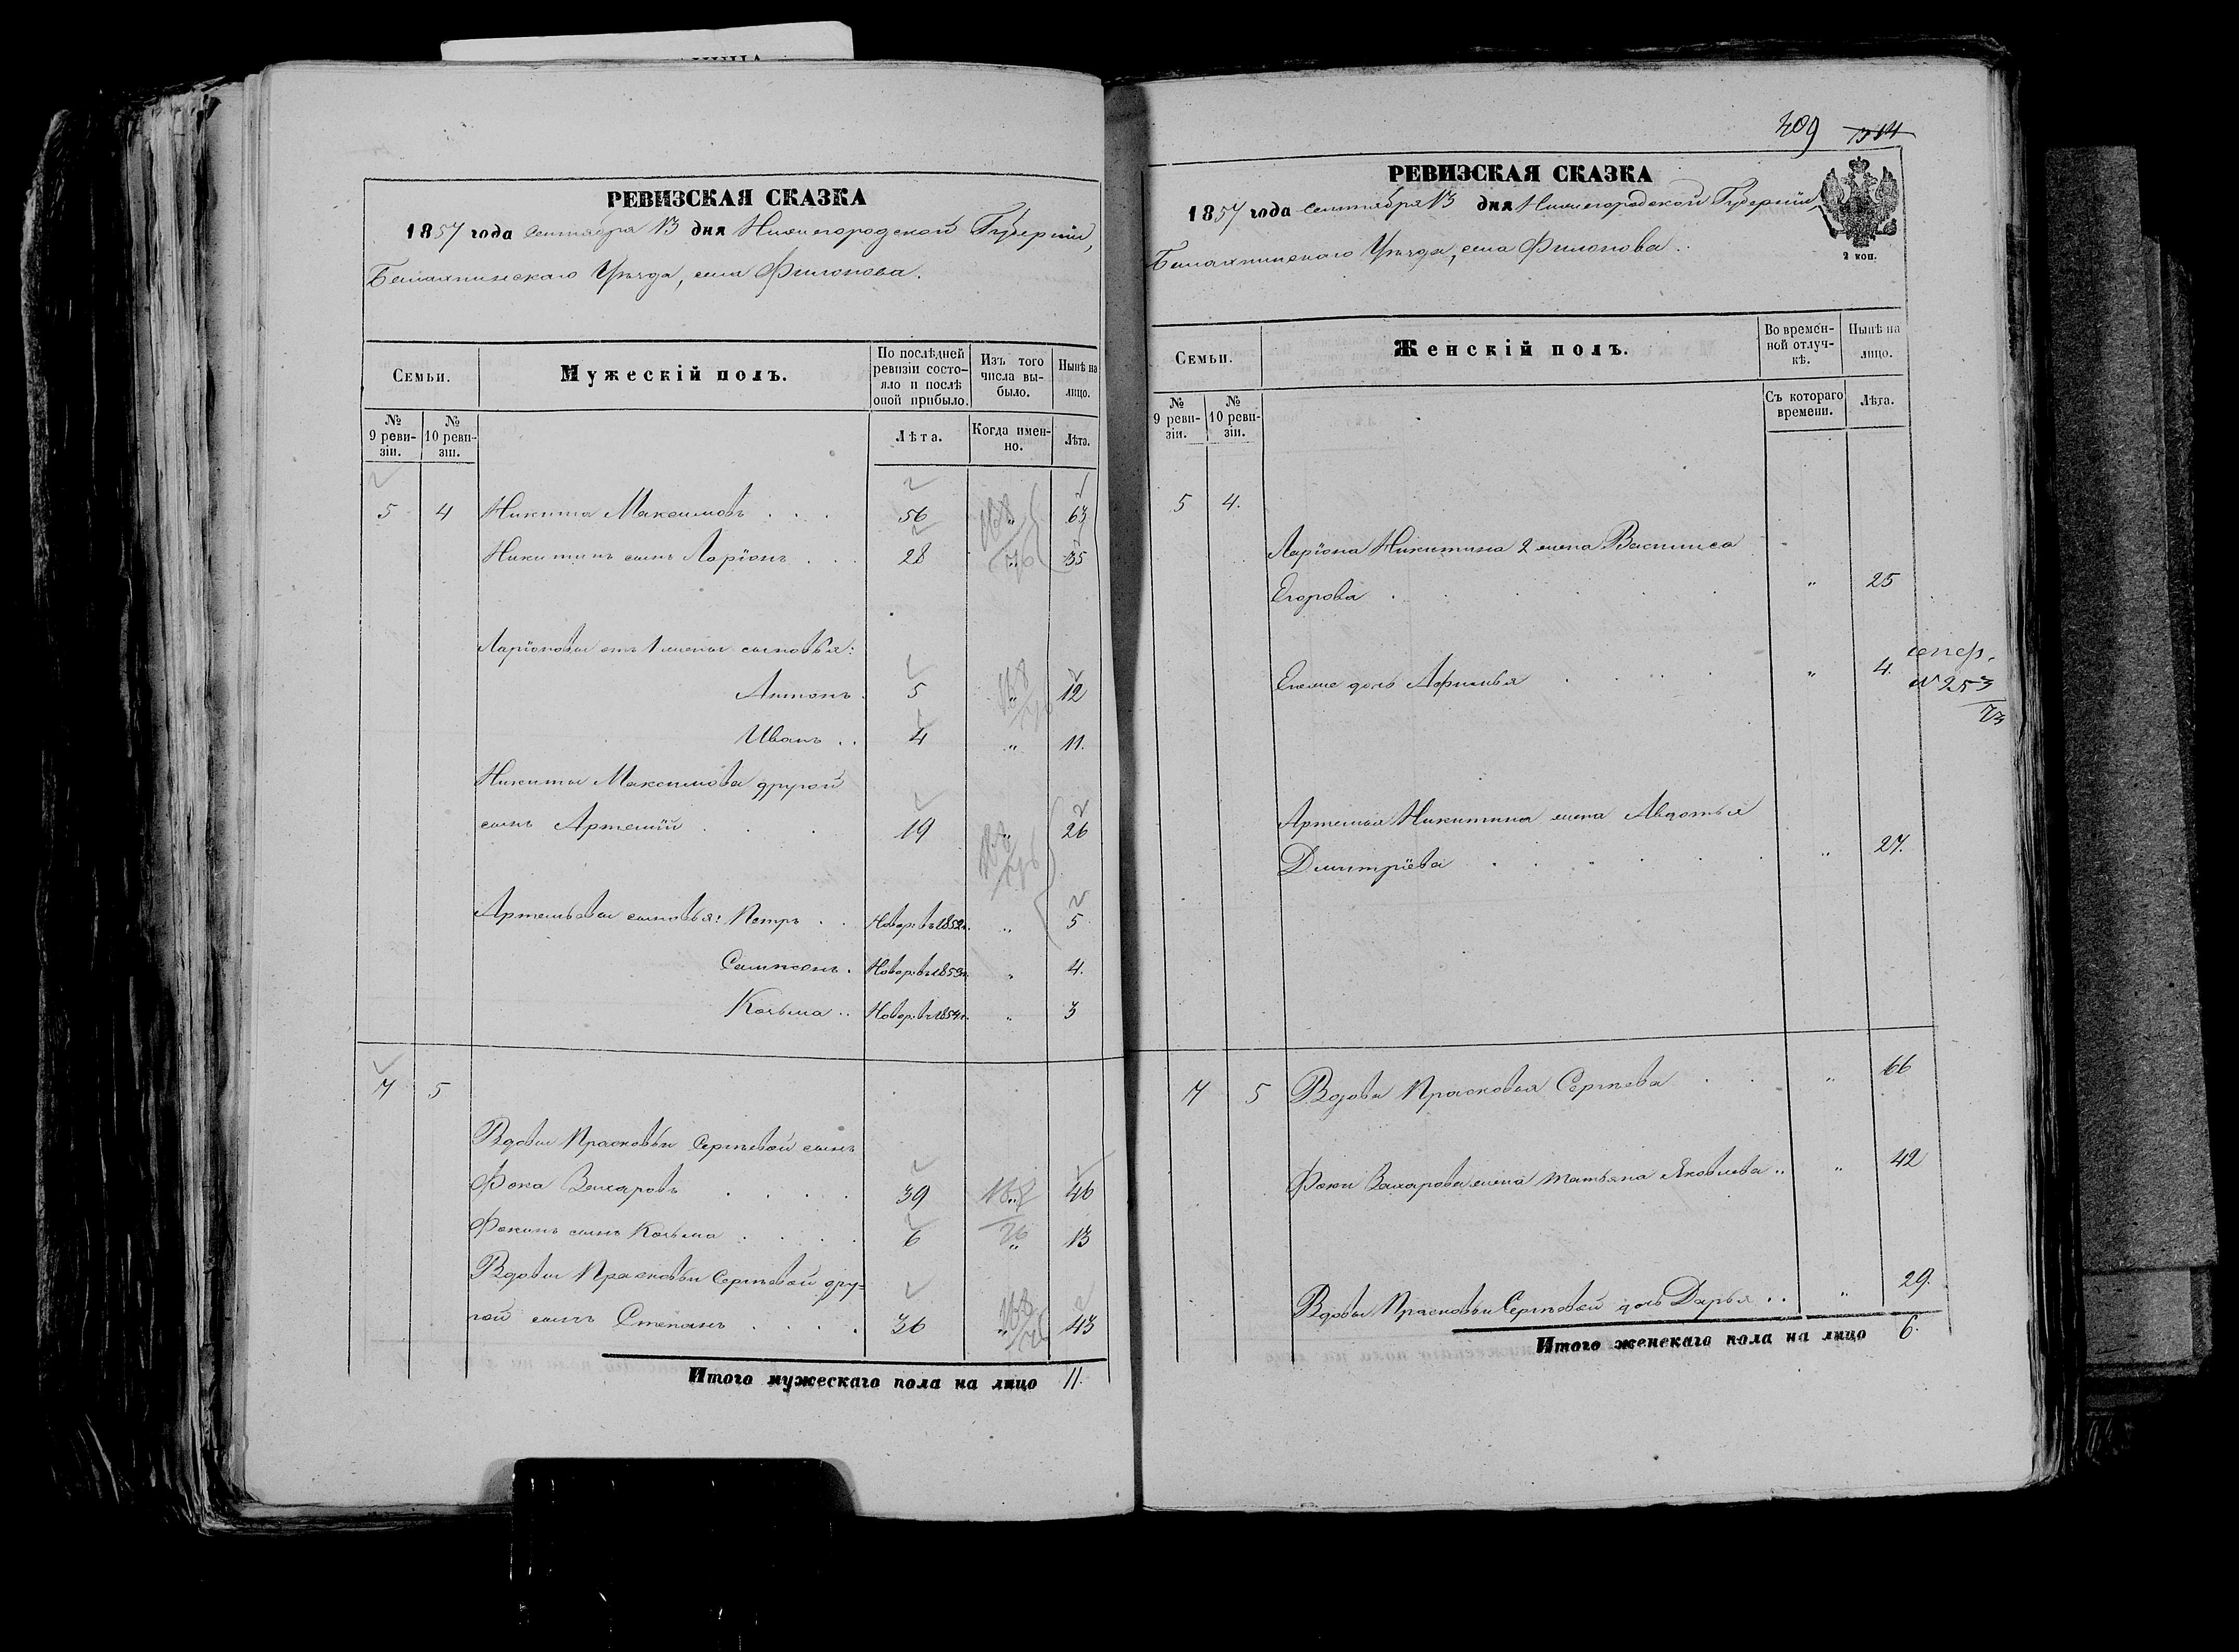 РЕВИЗСКАЯ СКАЗКА
1857 года Сентября 13 дня Нижегородской Губерніи,
Балахнинскаго Уѣзда, села Филонова.
Семьи.
Мужескій полъ.
По послѣдней ревизіи состояло и послѣ оной прибыло.
Изъ того числа выбыло.
Нынѣ на лицо.
№ 9 ревизіи.
№ 10 ревизіи.
Лѣта.
Когда именно.
Лѣта.
5 4 Никита Максимовъ . . . 56 " 63
Никитинъ сынъ Ларіонъ . . . 28 " 35
Ларіоновы отъ 1 жены сыновья:
Антонъ . 5 " 12
Иванъ . . 4 " 11.
Никиты Максимова другой
сынъ Артемій . . . 19 " 26
Артемьевы сыновья: Петръ . . Новор: въ 1852г. " 5
Сампсонъ . Новор: въ 1853г. " 4.
Козьма . . Новор: въ 1854г. " 3
7 5
Вдовы Прасковьи Сергѣевой сынъ
Фока Захаровъ . . . . 39 " 46
Фокинъ сынъ Козьма . . . . 6 " 13
Вдовы Прасковьи Сергѣевой дру-
гой сынъ Степанъ . . . . 36 " 43
Итого мужескаго пола на лицо 11.
409 
РЕВИЗСКАЯ СКАЗКА
1857 года Сентября 13 дня Нижегородской Губерніи,
Балахнинскаго Уѣзда, села Филонова.
2 коп.
Семьи.
Женскій полъ.
Во временной отлучкѣ.
Нынѣ на лицо.
№ 9 ревизіи.
№ 10 ревизіи.
Съ котораго времени.
Лѣта.
5 4.
Ларіона Никитина 2 жена Васились
Егорова . . . . . " 25
Ея же дочь Афимья . . . . " 4.
№ 253
73
Артемья Никитина жена Авдотья
Дмитріева . . . . . " 27.
7 5 Вдова Прасковья Сергѣева . . " 66
Фоки Захарова жена Татьяна Яковлева . . " 42
Вдовы Прасковьи Сергѣевой дочь Дарья . . " 29.
Итого женскаго пола на лицо 6.